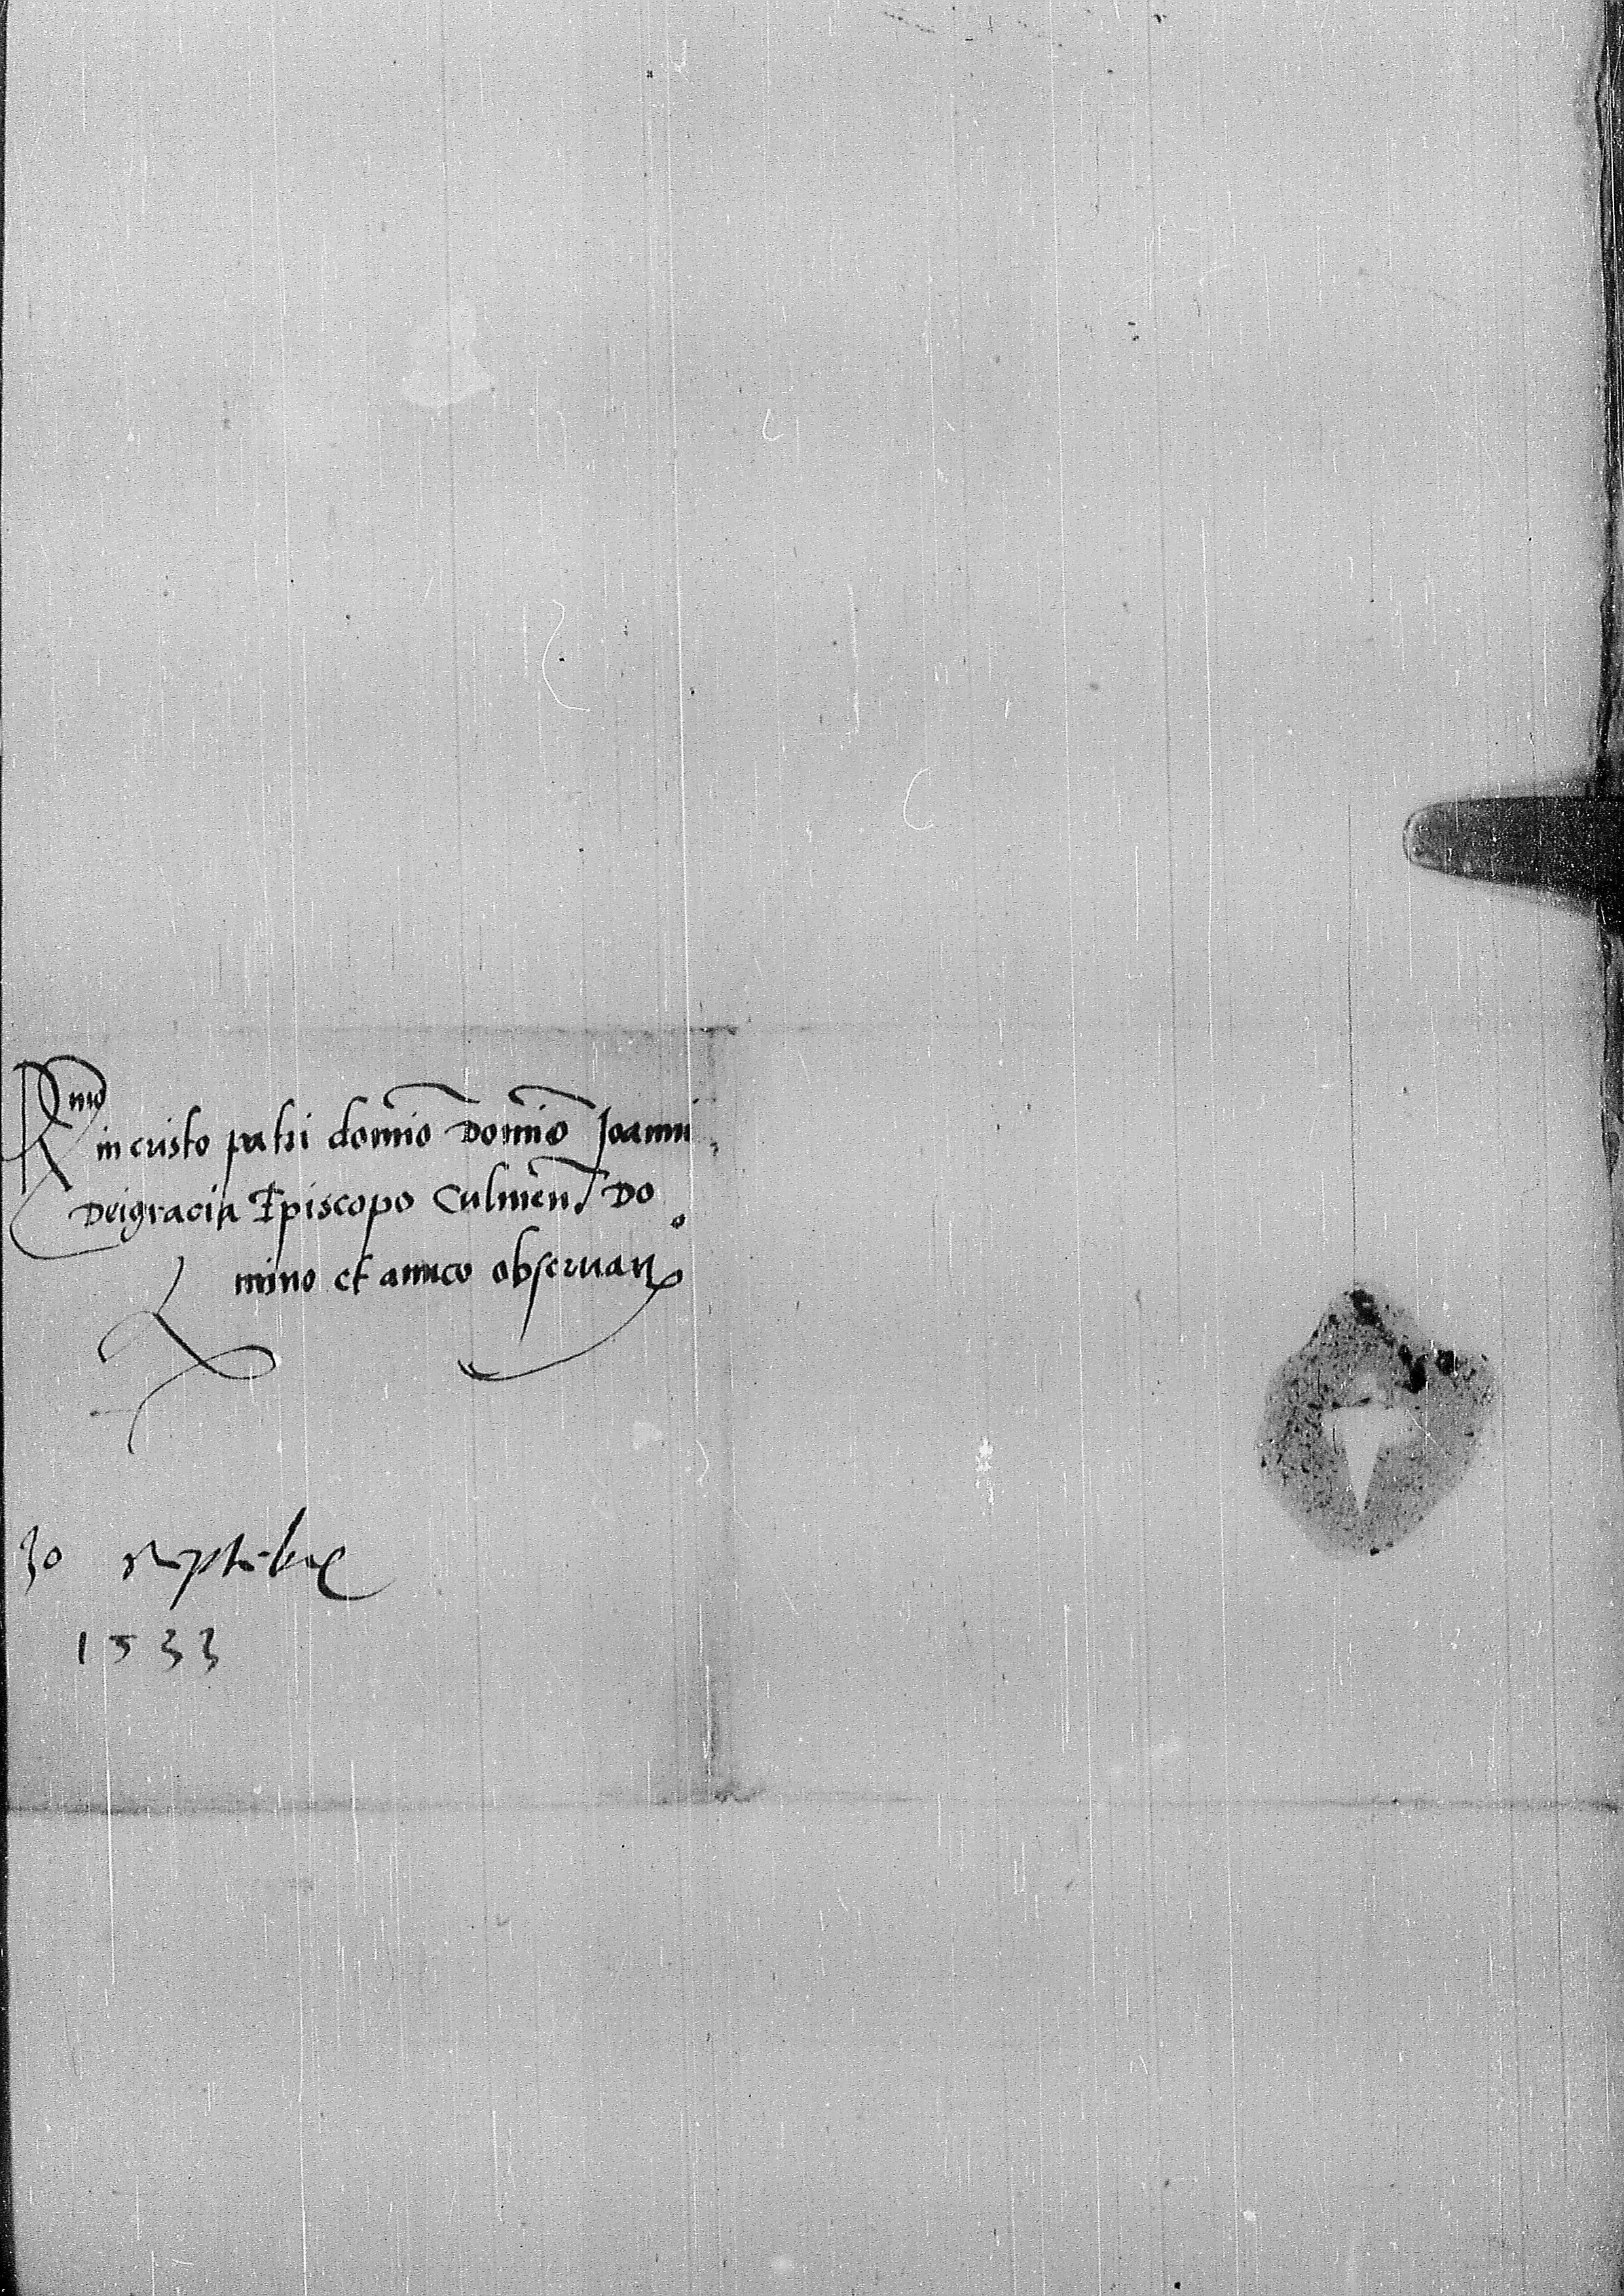 Rmo
in cristo patri domīo Domīo Joanni
Dei gracia Episcopo Culmeñ Do
mino et amico obseruanᵒ
30 septēbris
1533